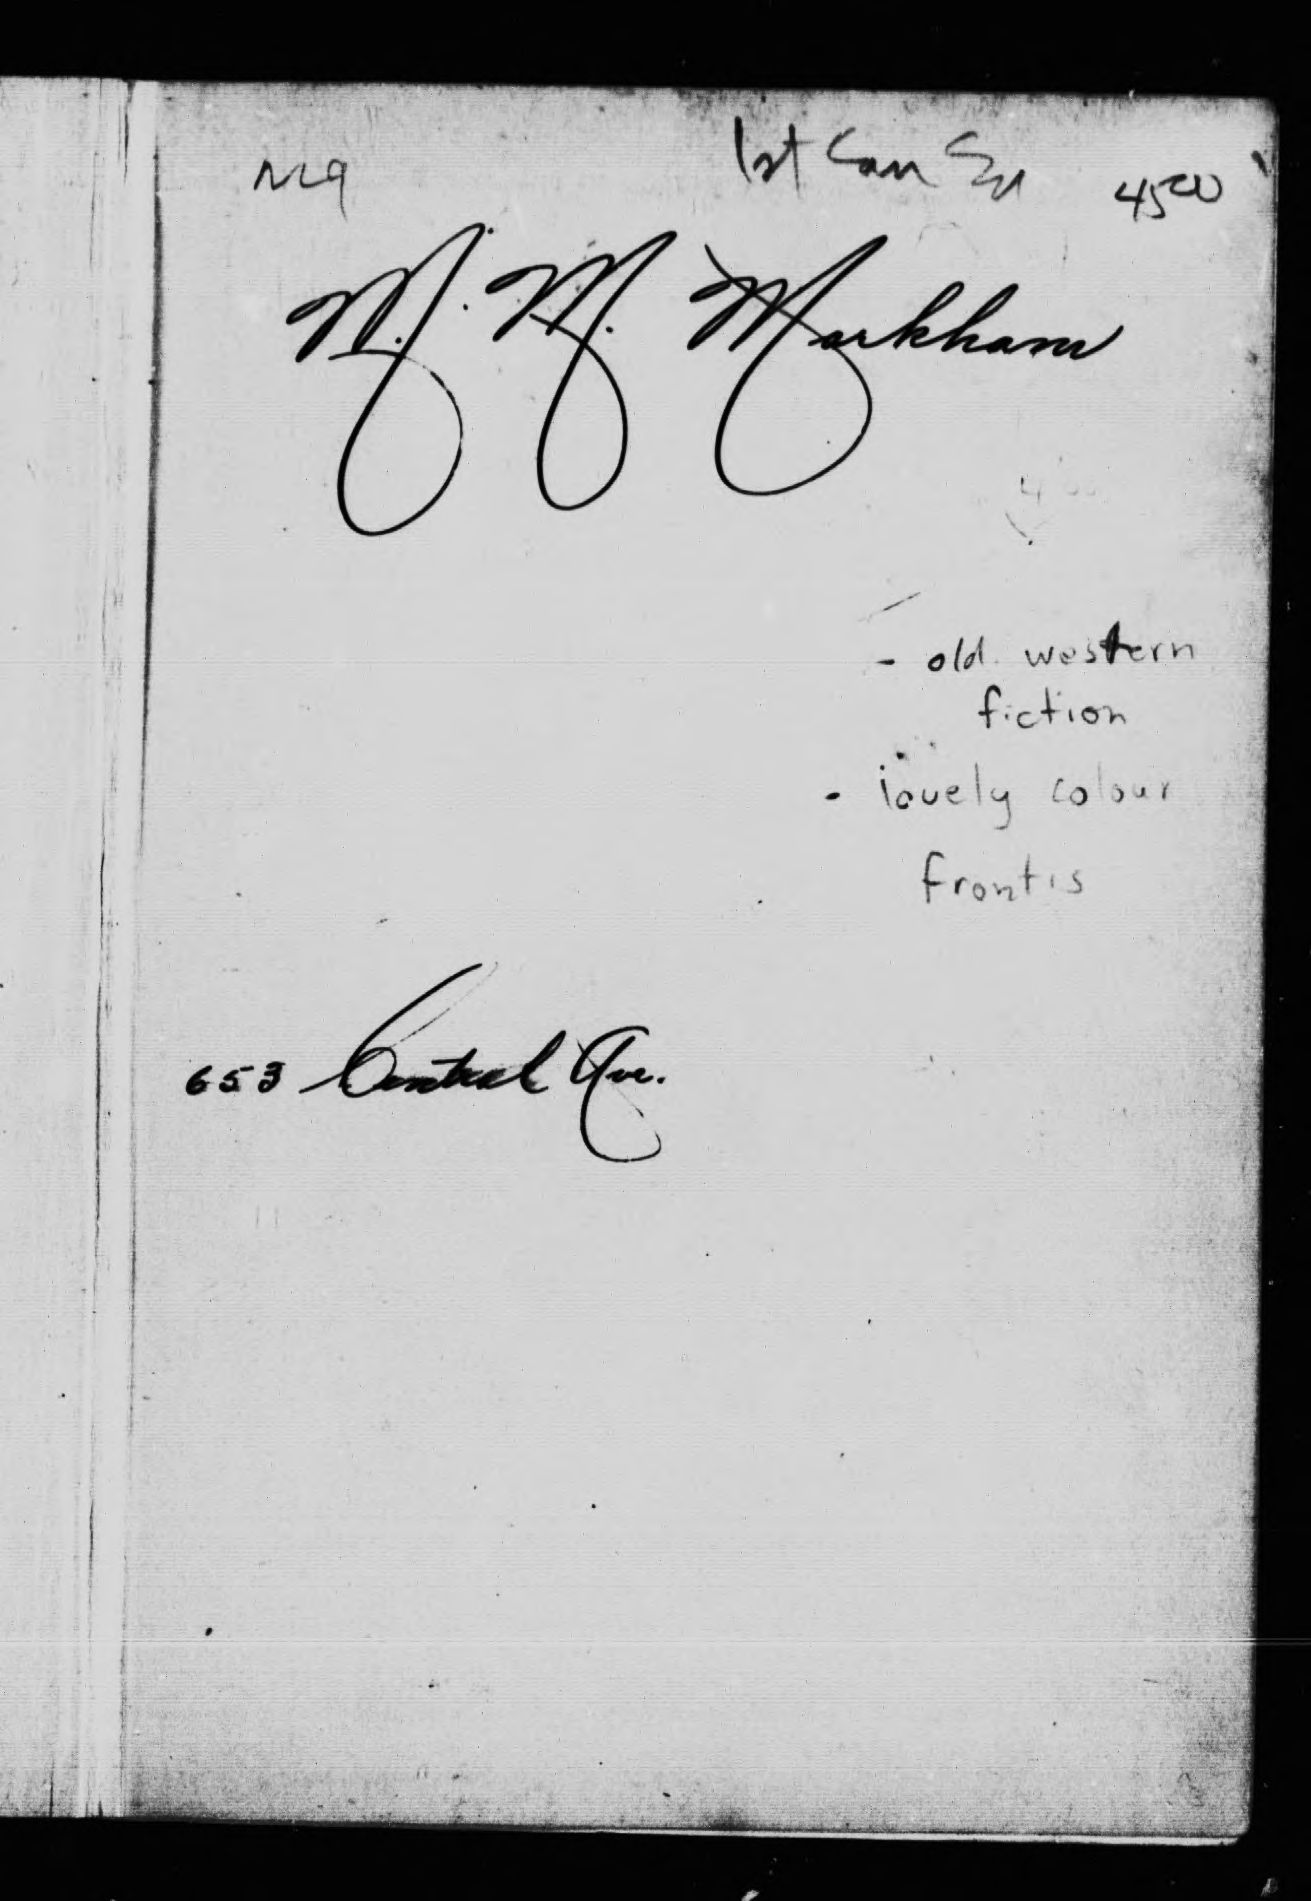 1st Can Ed
45 00
M. M. Markham
4 00
- old western
fiction
- lovely colour
frontis
653 Central Ave.